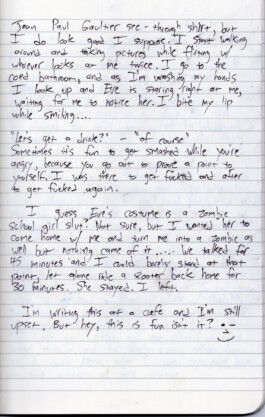 Jean Paul Gaultier see-through shirt, but
I do look good I suppose. I start walking
around and taking pictures while flirting w/
whoever looks at me twice. I go to the
coed bathroom, and as I'm washing my hands
I look up and Eve is staring right at me,
waiting for me to notice her. I bite my lip
while smiling....
"Let's get a drink?" - "of course"
Sometimes it's fun to get smashed while you're
angry, because you go out to prove a point to
yourself. I was there to get fucked and after
to get fucked again.
I guess Eve's costume is a zombie
school girl slut? Not sure, but I wanted her to
come home w/ me and turn me into a zombie as
well but nothing came of it..... We talked for
45 minutes and I could barely stand at that
point, let alone ride a scooter back home for
30 minutes. She stayed. I left.
I'm writing this at a cafe and I'm still
upset. But hey, this is fun isn't it?